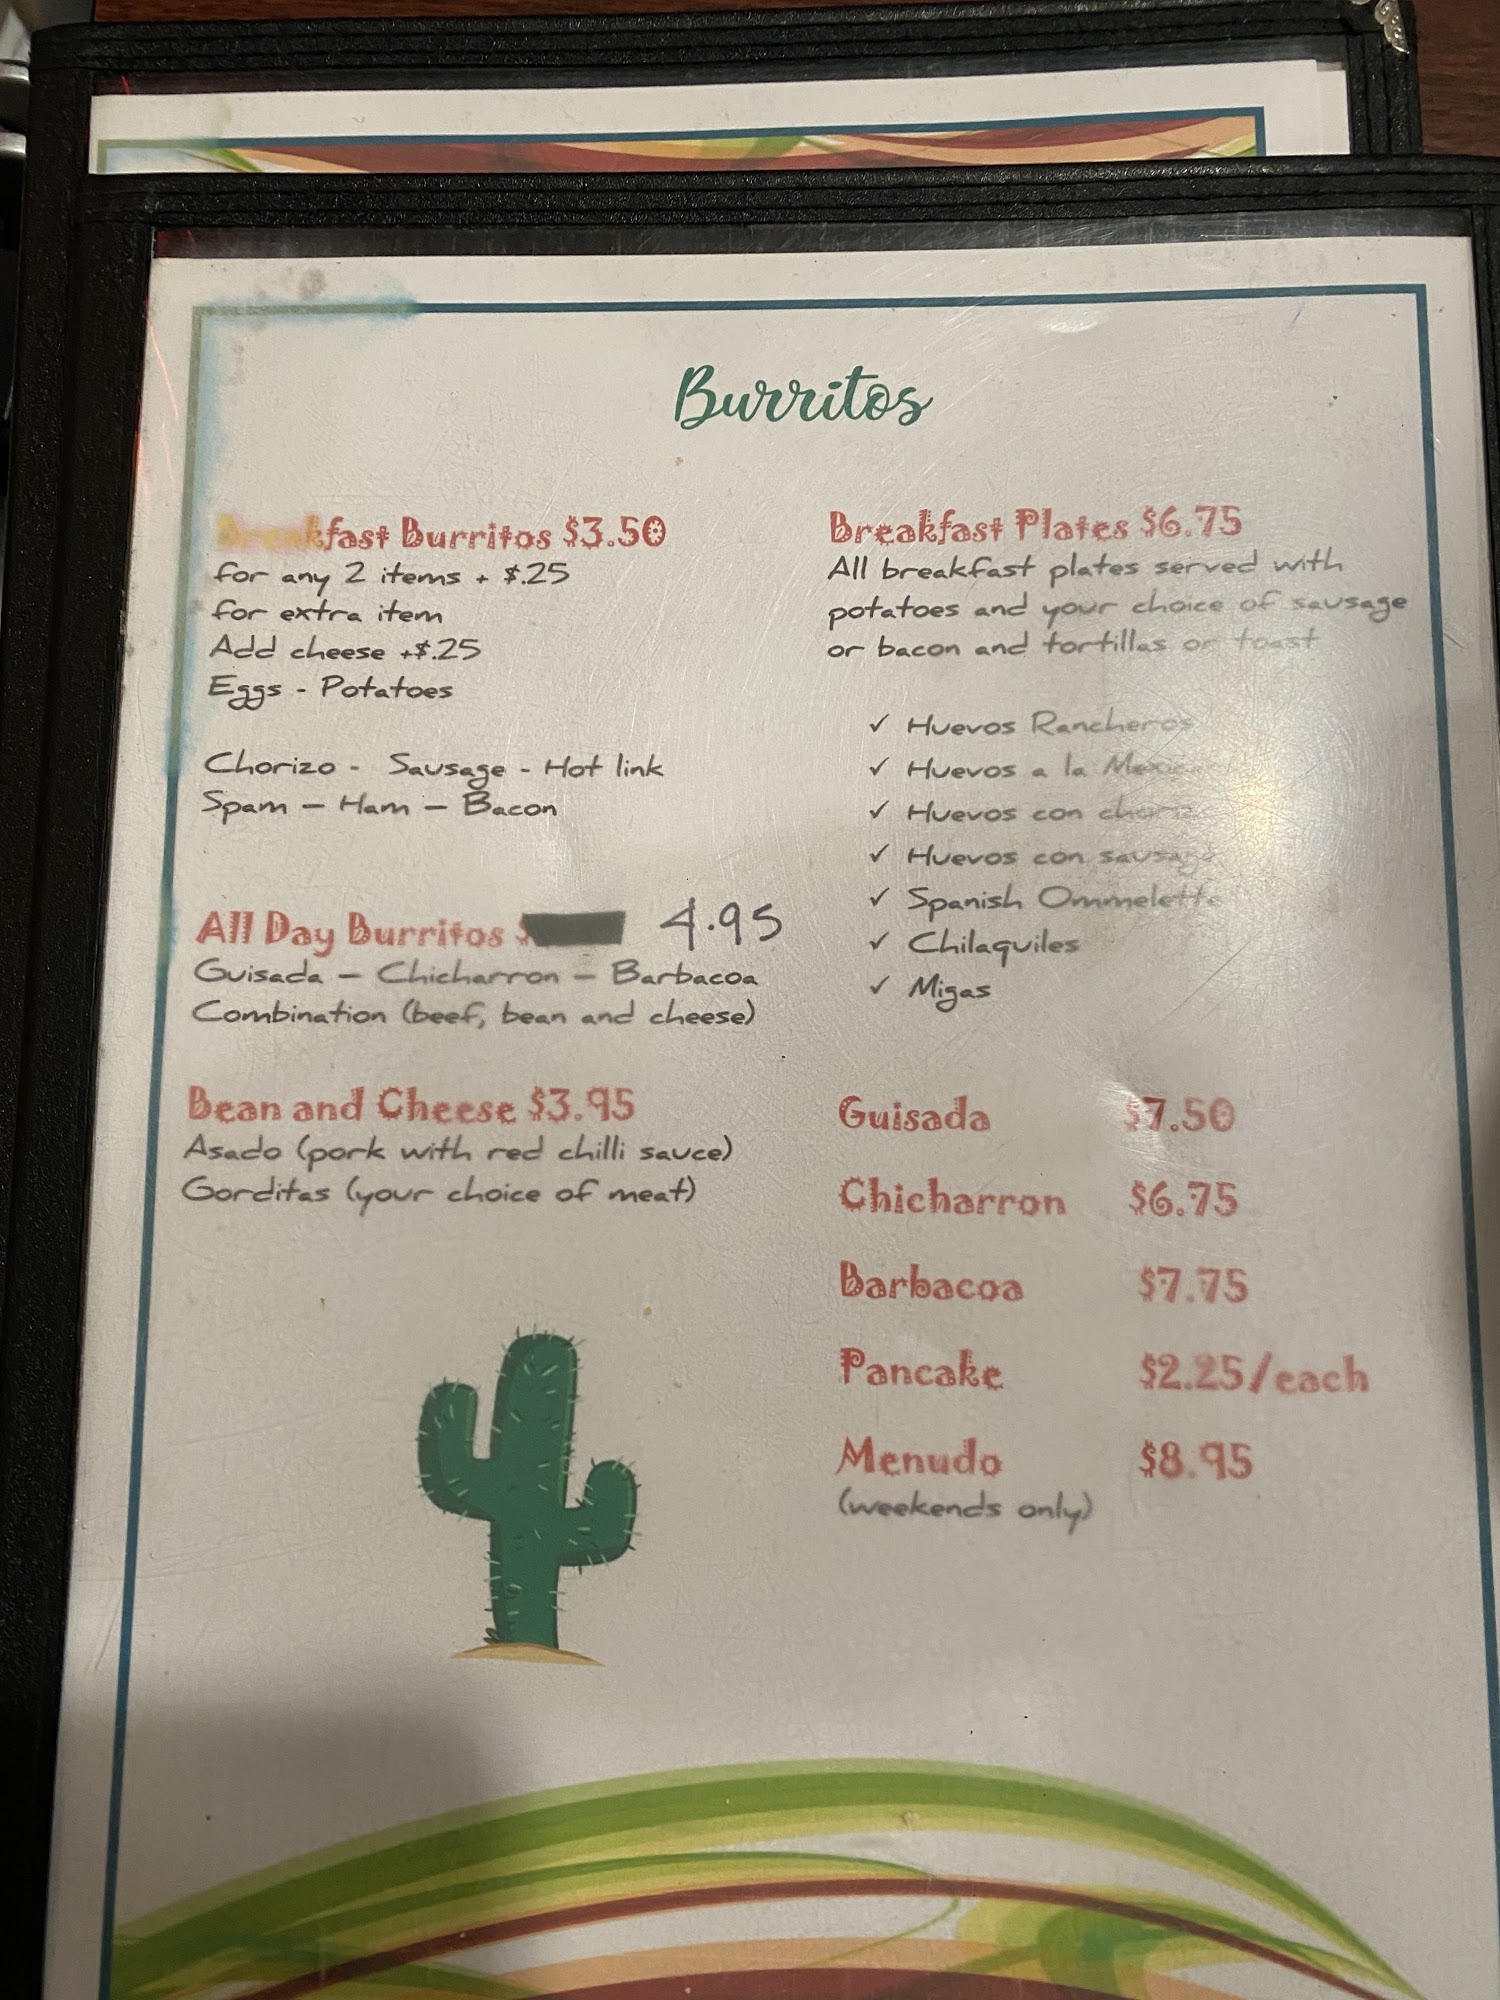 Burritos
Breakfast Burritos $3.50
for any 2 items + $.25
for extra item
Add cheese +$.25
Eggs - Potatoes
Chorizo - Sausage - Hot link
Spam – Ham – Bacon
All Day Burritos $ 4.95
Guisada – Chicharron – Barbacoa
Combination (beef, bean and cheese)
Bean and Cheese $3.95
Asado (pork with red chilli sauce)
Gorditas (your choice of meat)
Breakfast Plates $6.75
All breakfast plates served with
potatoes and your choice of sausage
or bacon and tortillas or toast
✓ Huevos Rancheros
✓ Huevos a la Mexicana
✓ Huevos con chorizo
✓ Huevos con sausage
✓ Spanish Ommelette
✓ Chilaquiles
✓ Migas
Guisada $7.50
Chicharron $6.75
Barbacoa $7.75
Pancake $2.25/each
Menudo $8.95
(weekends only)